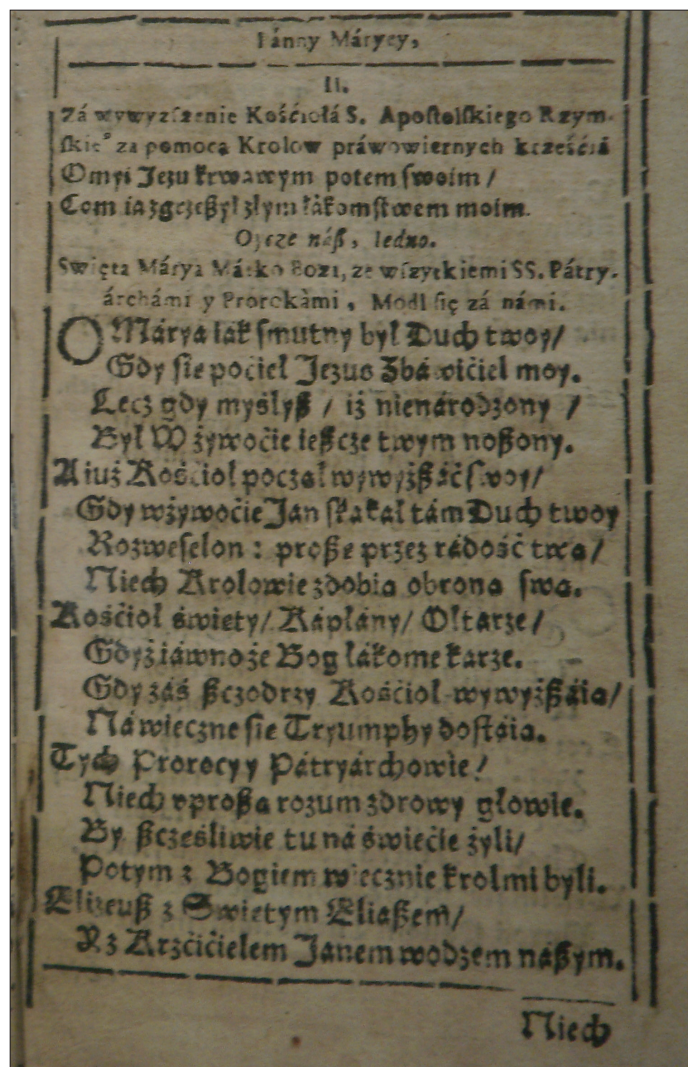 Pánny Máryey,
II.
Zá wywyzſzenie Kośćiołá S. Apoſtolſkiego Rzym-
ſkieº zá pomocą Krolow práwowiernych krześćiá
Omyi Jezu krwawym potem ſwoim /
Com ia zgrzeßył złym łákomſtwem moim.
Ojcze náß, Iedno.
Swięta Márya Mátko Bozi, ze wſzytkiemi SS. Pátry-
árchámi y Prorokámi, Modl ſię zá námi.
O Márya iák ſmutny był Duch twoy /
Gdy ſie poćieł Jezus Zbáwićiel moy.
Lecz gdy myślyß / iż nienárodzony /
Był W żywoćie ießcze twym noßony.
A iuż Kośćioł poczał wywyżßáć ſwoy /
Gdy wżywoćie Jan ſkakał tám Duch twoy
Rozweſelon : proßę przez rádość twa /
Niech Krolowie zdobia obrona ſwa.
Kośćioł świety / Kápłány / Ołtarze /
Gdyż iáwno że Bog łákome karze.
Gdy záś ßczodrzy Kośćioł wywyżßáia /
Ná wieczne ſie Tryumphy doſtáia.
Tych Prorocy y Pátryárchowie /
Niech vproßa rozum zdrowy głowie.
By ßcześliwie tu ná świećie żyli /
Potym z Bogiem wiecznie krolmi byli.
Elizeuß z Swietym Eliaßem /
Y z Krzćićielem Janem wodzem náßym.
Niech